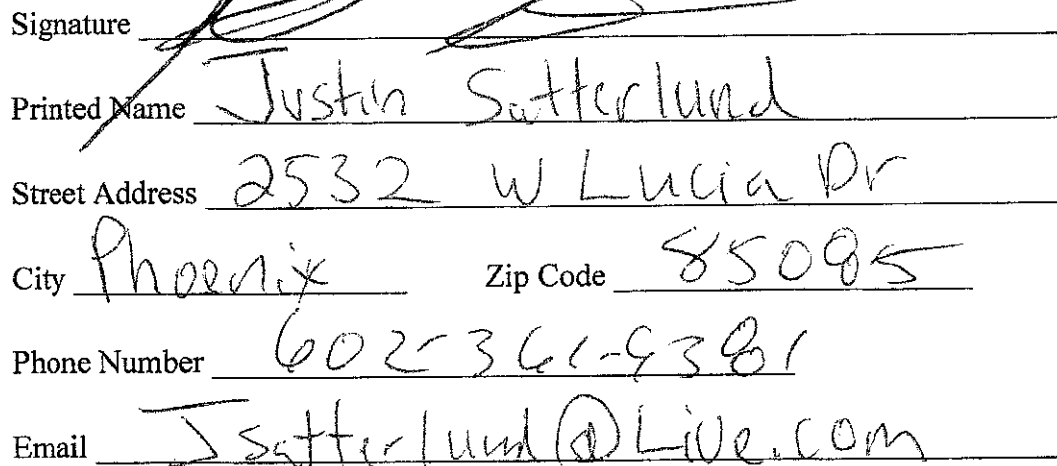 Signature
Printed Name Justin Satterlund
Street Address 2532 W Lucia Dr
City Phoenix Zip Code 85085
Phone Number 602-361-9381
Email JSatterlund@Live.com